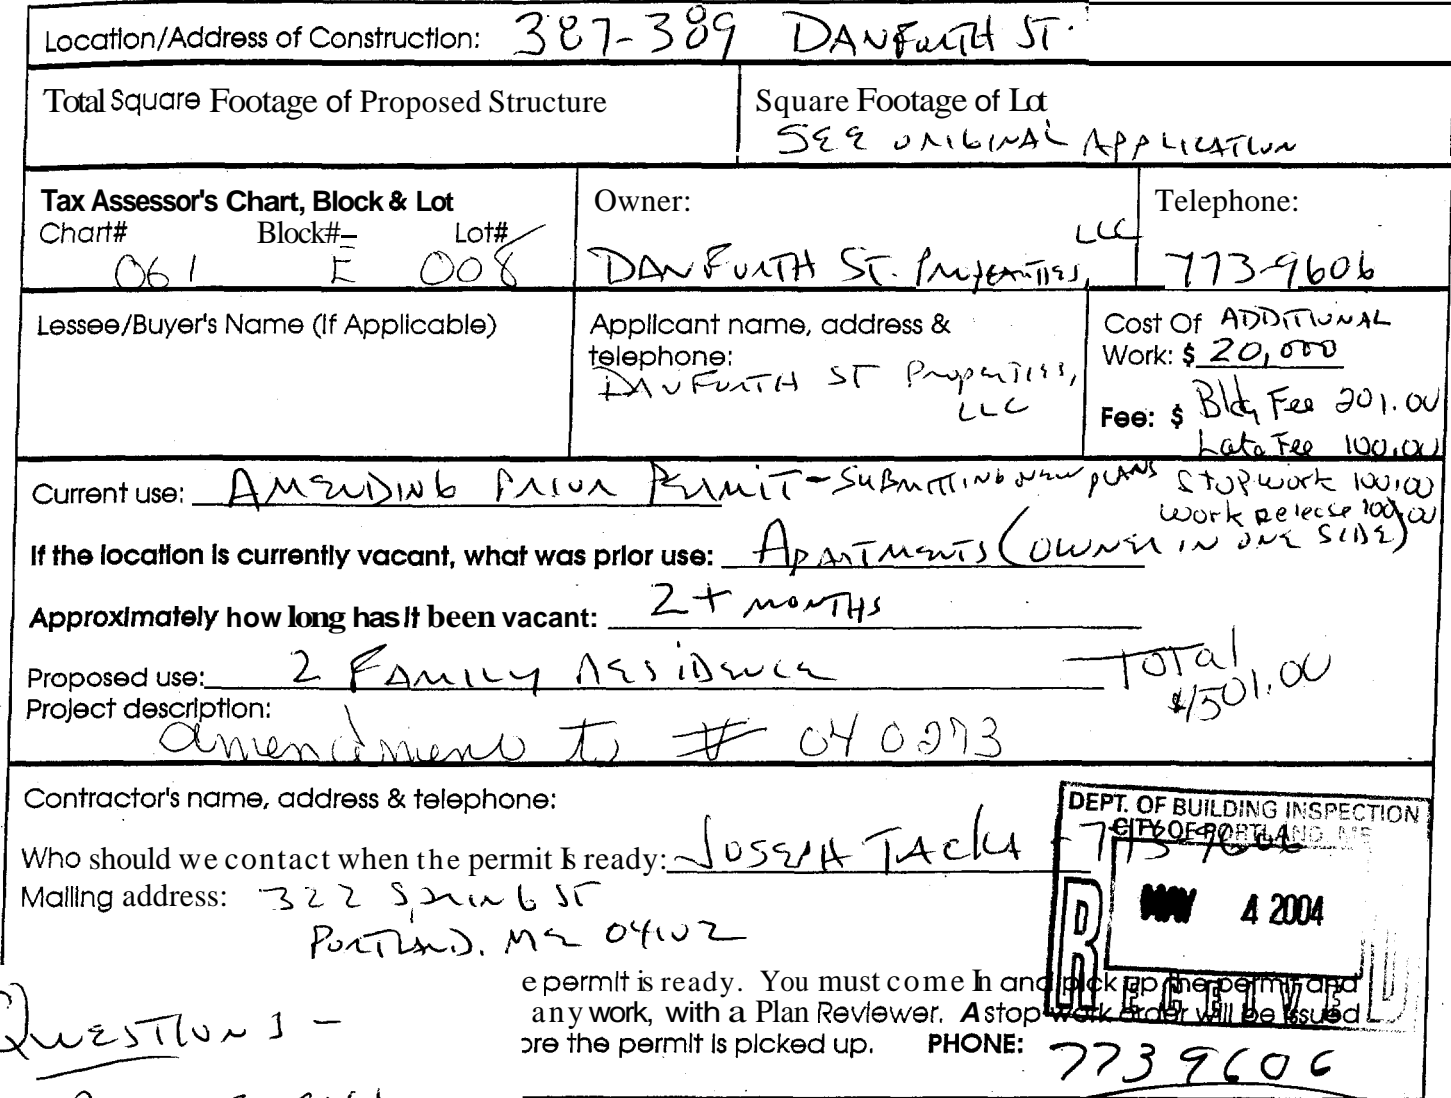 Location/Address of Construction: 387-389 DANFORTH ST.
Total Square Footage of Proposed Structure
Square Footage of Lot
SEE ORIGINAL APPLICATION
Tax Assessor's Chart, Block & Lot
Chart# Block# Lot#
061 E 008
Owner:
DANFORTH ST. PROPERTIES, LLC
Telephone:
773-9606
Lessee/Buyer's Name (If Applicable)
Applicant name, address &
telephone:
DANFORTH ST PROPERTIES,
LLC
Cost Of ADDITIONAL
Work: $ 20,000
Fee: $ Bldg Fee 201.00
Late Fee 100.00
Stop work 100.00
Work Release 100.00
Current use: AMENDING PRIOR PERMIT - SUBMITTING NEW PLANS
If the location is currently vacant, what was prior use: APARTMENTS (OWNER IN ONE SIDE)
Approximately how long has it been vacant: 2+ MONTHS
Proposed use: 2 FAMILY RESIDENCE
Total
$501.00
Project description:
amendment to # 040273
Contractor's name, address & telephone:
Who should we contact when the permit is ready: JOSEPH TACKA - 773 9606
Mailing address: 322 SPRING ST
PORTLAND, ME 04102
DEPT. OF BUILDING INSPECTION
CITY OF PORTLAND, ME
MAY 4 2004
RECEIVED
e permit is ready. You must come In and pick up the permit and
any work, with a Plan Reviewer. A stop work order will be issued
ore the permit is picked up. PHONE: 773 9606
QUESTIONS -